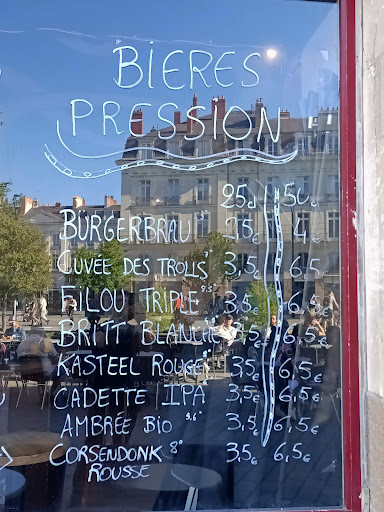 BIERES
PRESSION
25cl 50cl
BÜRGERBRAU 2,5€ 4€
CUVÉE DES TROLLS 7° 3,5€ 6,5€
FILOU TRIPLE 8.5° 3,5€ 6,5€
BRITT BLANCHE 3,5€ 6,5€
KASTEEL ROUGE 3,5€ 6,5€
CADETTE IPA 3,5€ 6,5€
AMBRÉE BIO 5,6° 3,5€ 6,5€
CORSENDONK 8° 3,5€ 6,5€
ROUSSE